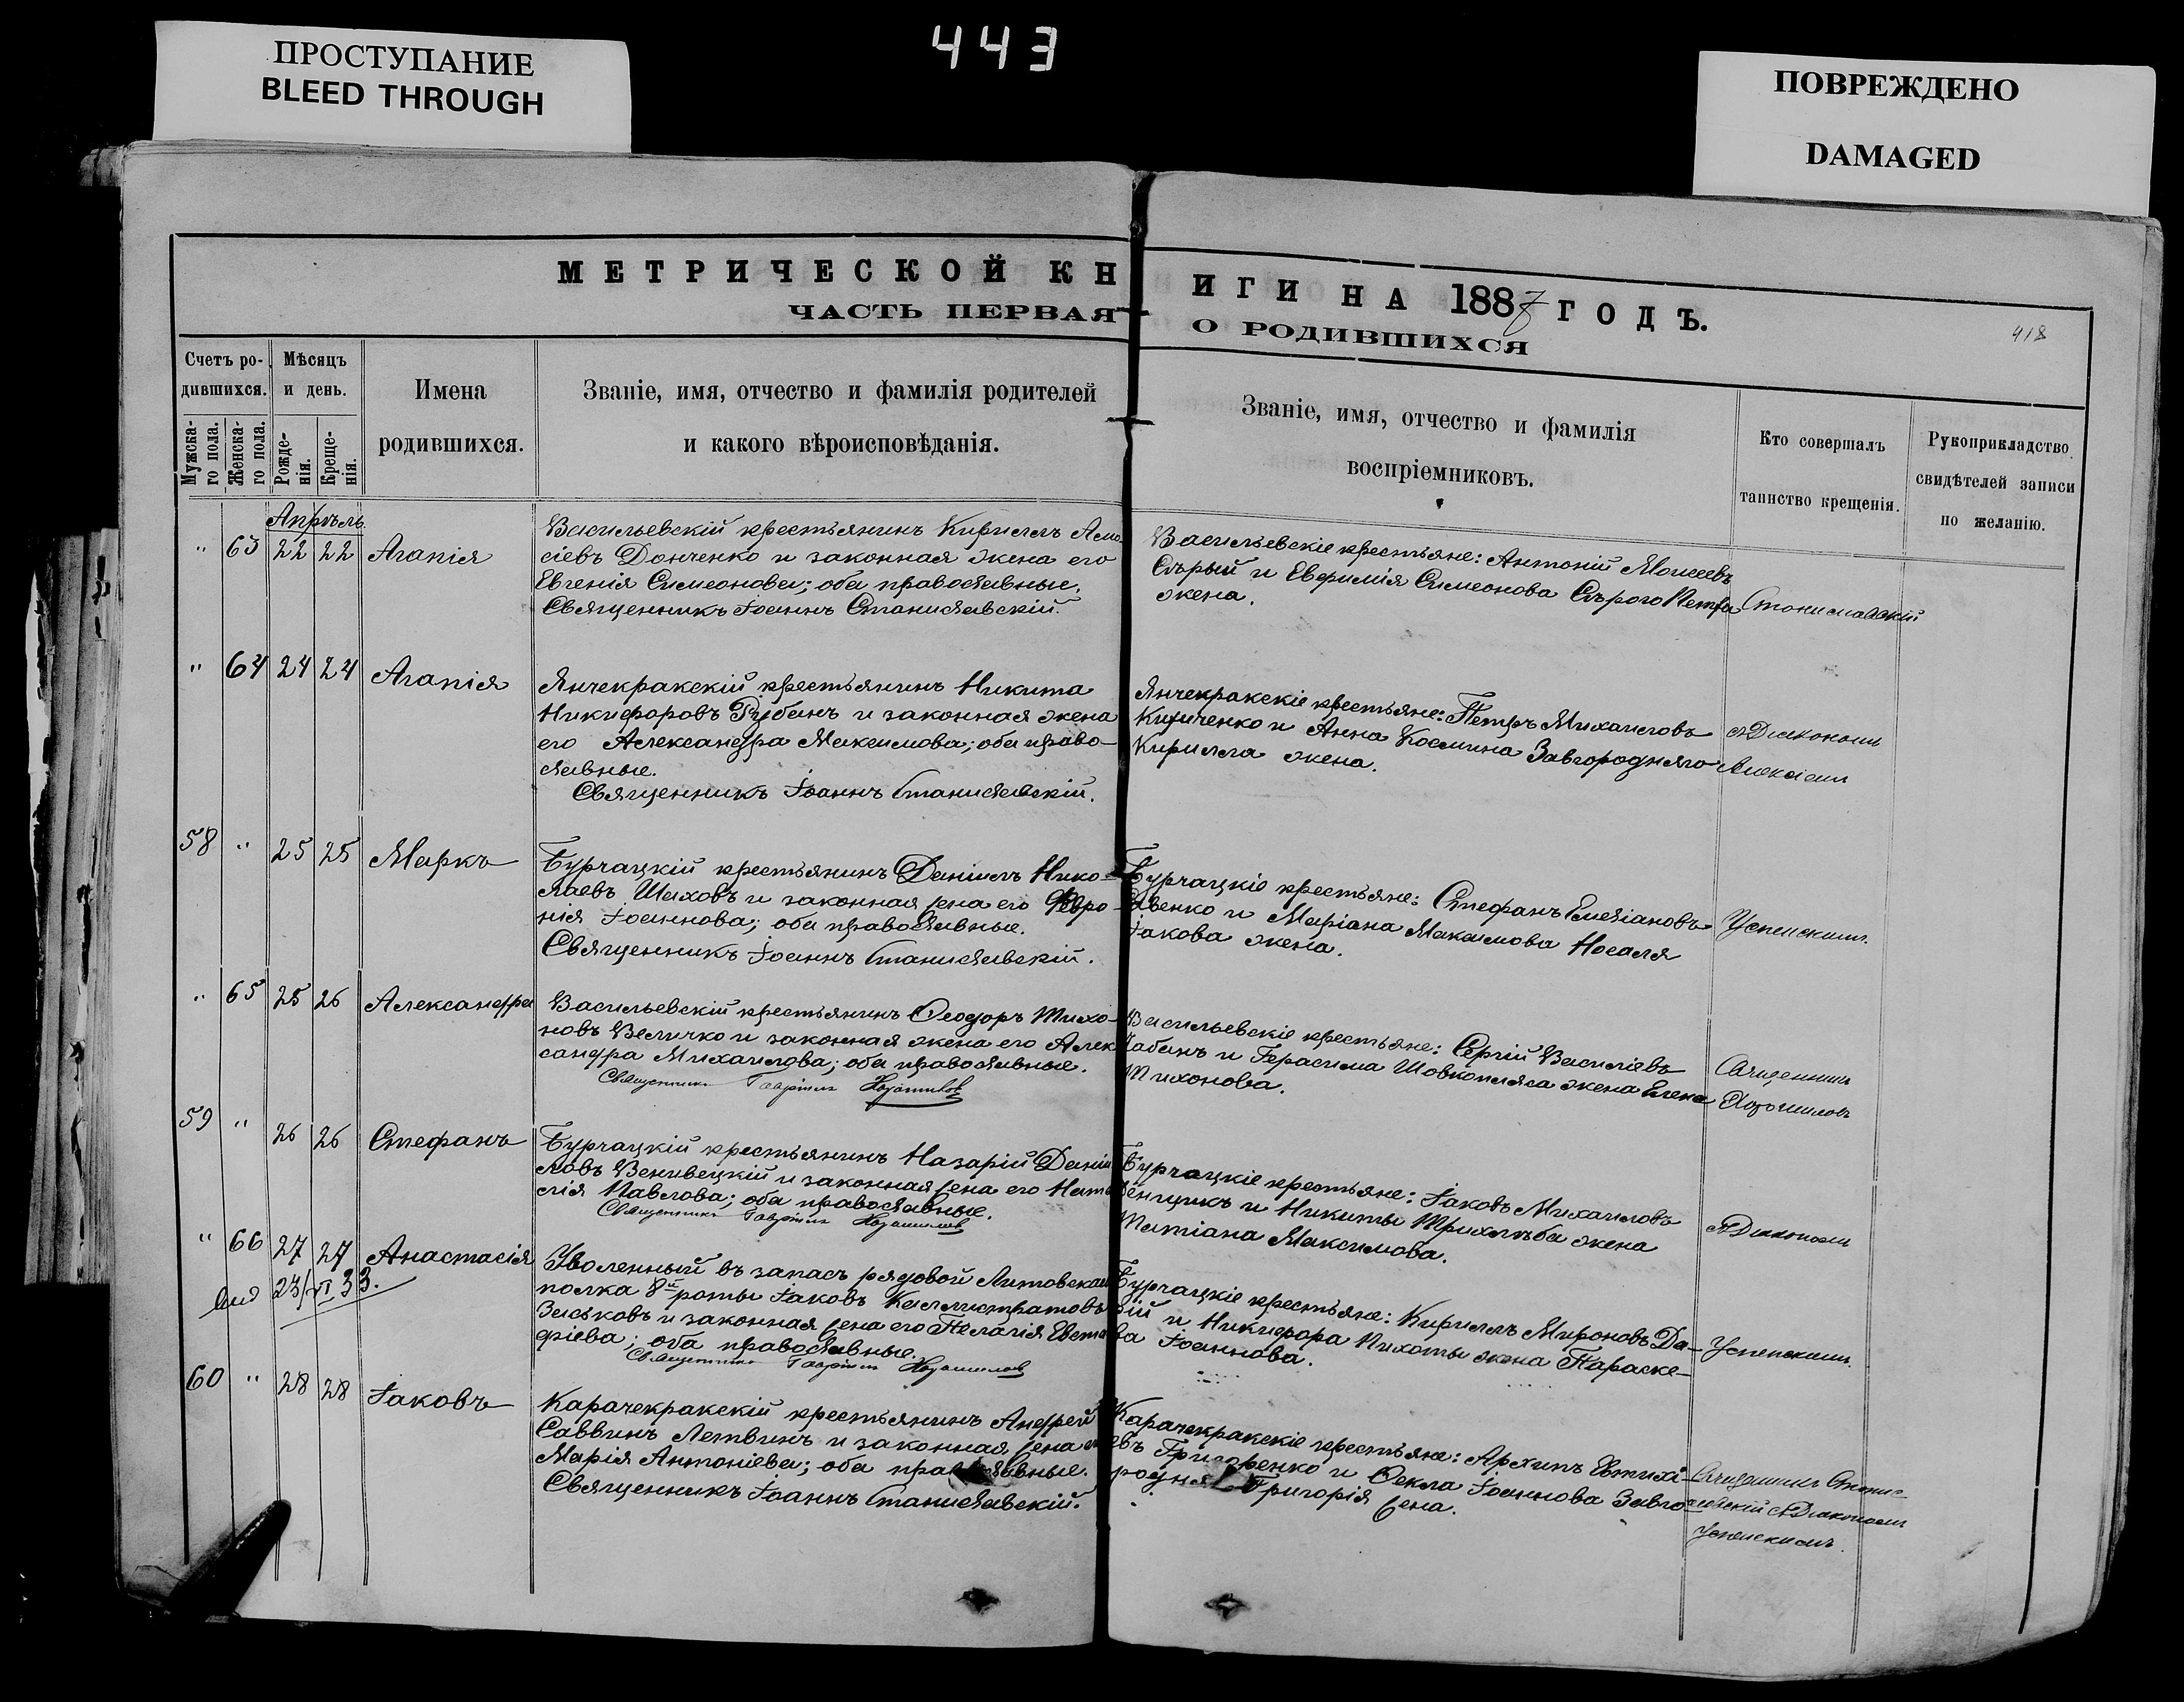 443
ПРОСТУПАНИЕ
BLEED THROUGH
ПОВРЕЖДЕНО
DAMAGED
МЕТРИЧЕСКОЙ КН
ЧАСТЬ ПЕРВАЯ
ИГИ НА 1887 ГОДЪ.
О РОДИВШИХСЯ
418
Счетъ ро-
дившихся.
Мужска-
го пола.
Женска-
го пола.
Мѣсяцъ
и день.
Рожде-
нія.
Креще-
нія.
Имена
родившихся.
Званіе, имя, отчество и фамилія родителей
и какого вѣроисповѣданія.
Званіе, имя, отчество и фамилія
воспріемниковъ.
Кто совершалъ
таинство крещенія.
Рукоприкладство
свидѣтелей записи
по желанію.
Апрѣль.
" 63 22 22 Агапія
Васильевскій крестьянинъ Кириллъ
сіевъ Донченко и законная жена его
Евгенія Симеонова; оба православные.
Священникъ Іоаннъ Станиславскій.
Васильевскіе крестьяне: Антоній Моисеевъ
Сѣрый и Евфимія Симеонова Сѣраго Петра
жена.
Станиславскій
" 64 24 24 Агапія
Янчекракскій крестьянинъ Никита
Никифоровъ Рубанъ и законная жена
его Александра Максимова; оба право-
славные.
Священникъ Іоаннъ Станиславскій.
Янчекракскіе крестьяне: Петръ Михаиловъ
Кириченко и Анна Космина Завгородняго
Кирилла жена.
съ Діакономъ
Алексіемъ
58 " 25 25 Маркъ
Бурчацкій крестьянинъ Даніилъ Нико-
лаевъ Шиховъ и законная жена его Февро-
нія Іоаннова; оба православные.
Священникъ Іоаннъ Станиславскій.
Бурчацкіе крестьяне: Стефанъ Емеліановъ
Савенко и Маріана Максимова Носаля
Іакова жена.
Успенскимъ.
" 65 25 26 Александра
Васильевскій крестьянинъ Ѳеодоръ Тихо-
новъ Величко и законная жена его Алек-
сандра Михаилова; оба православные.
Священникъ Гавріилъ
Васильевскіе крестьяне: Сергій Василіевъ
Чабанъ и Герасима Шовкопляса жена Елена
Тихонова.
Священникъ
59 " 26 26 Стефанъ
Бурчацкій крестьянинъ Назарій Даніи
ловъ Венивецкій и законная жена его Ната
лія Павлова; оба православные.
Священникъ Гавріилъ
Бурчацкіе крестьяне: Іаковъ Михаиловъ
и Никиты Трихлѣба жена
Татіана Максимова.
съ Діакономъ
" 66 27 27 Анастасія
23/VI 33.
Уволенный въ запасъ рядовой Литовскаго
полка 8й роты Іаковъ Каллистратовъ
Заськовъ и законная жена его Пелагія Евста
фіева; оба православные.
Священникъ Гавріилъ
Бурчацкіе крестьяне: Кириллъ Мироновъ Да-
вій и Никифора Пихоты жена Параске-
ва Іоаннова.
Успенскимъ.
60 " 28 28 Іаковъ
Карачекракскій крестьянинъ Андрей
Саввинъ Летвинъ и законная жена его
Марія Антоніева; оба православные.
Священникъ Іоаннъ Станиславскій.
Карачекракскіе крестьяне: Архипъ Евтихі-
евъ Григоренко и Ѳекла Іоаннова Завго-
родня Григорія жена.
Священникъ Станис-
лавскій съ Діакономъ
Успенскимъ.